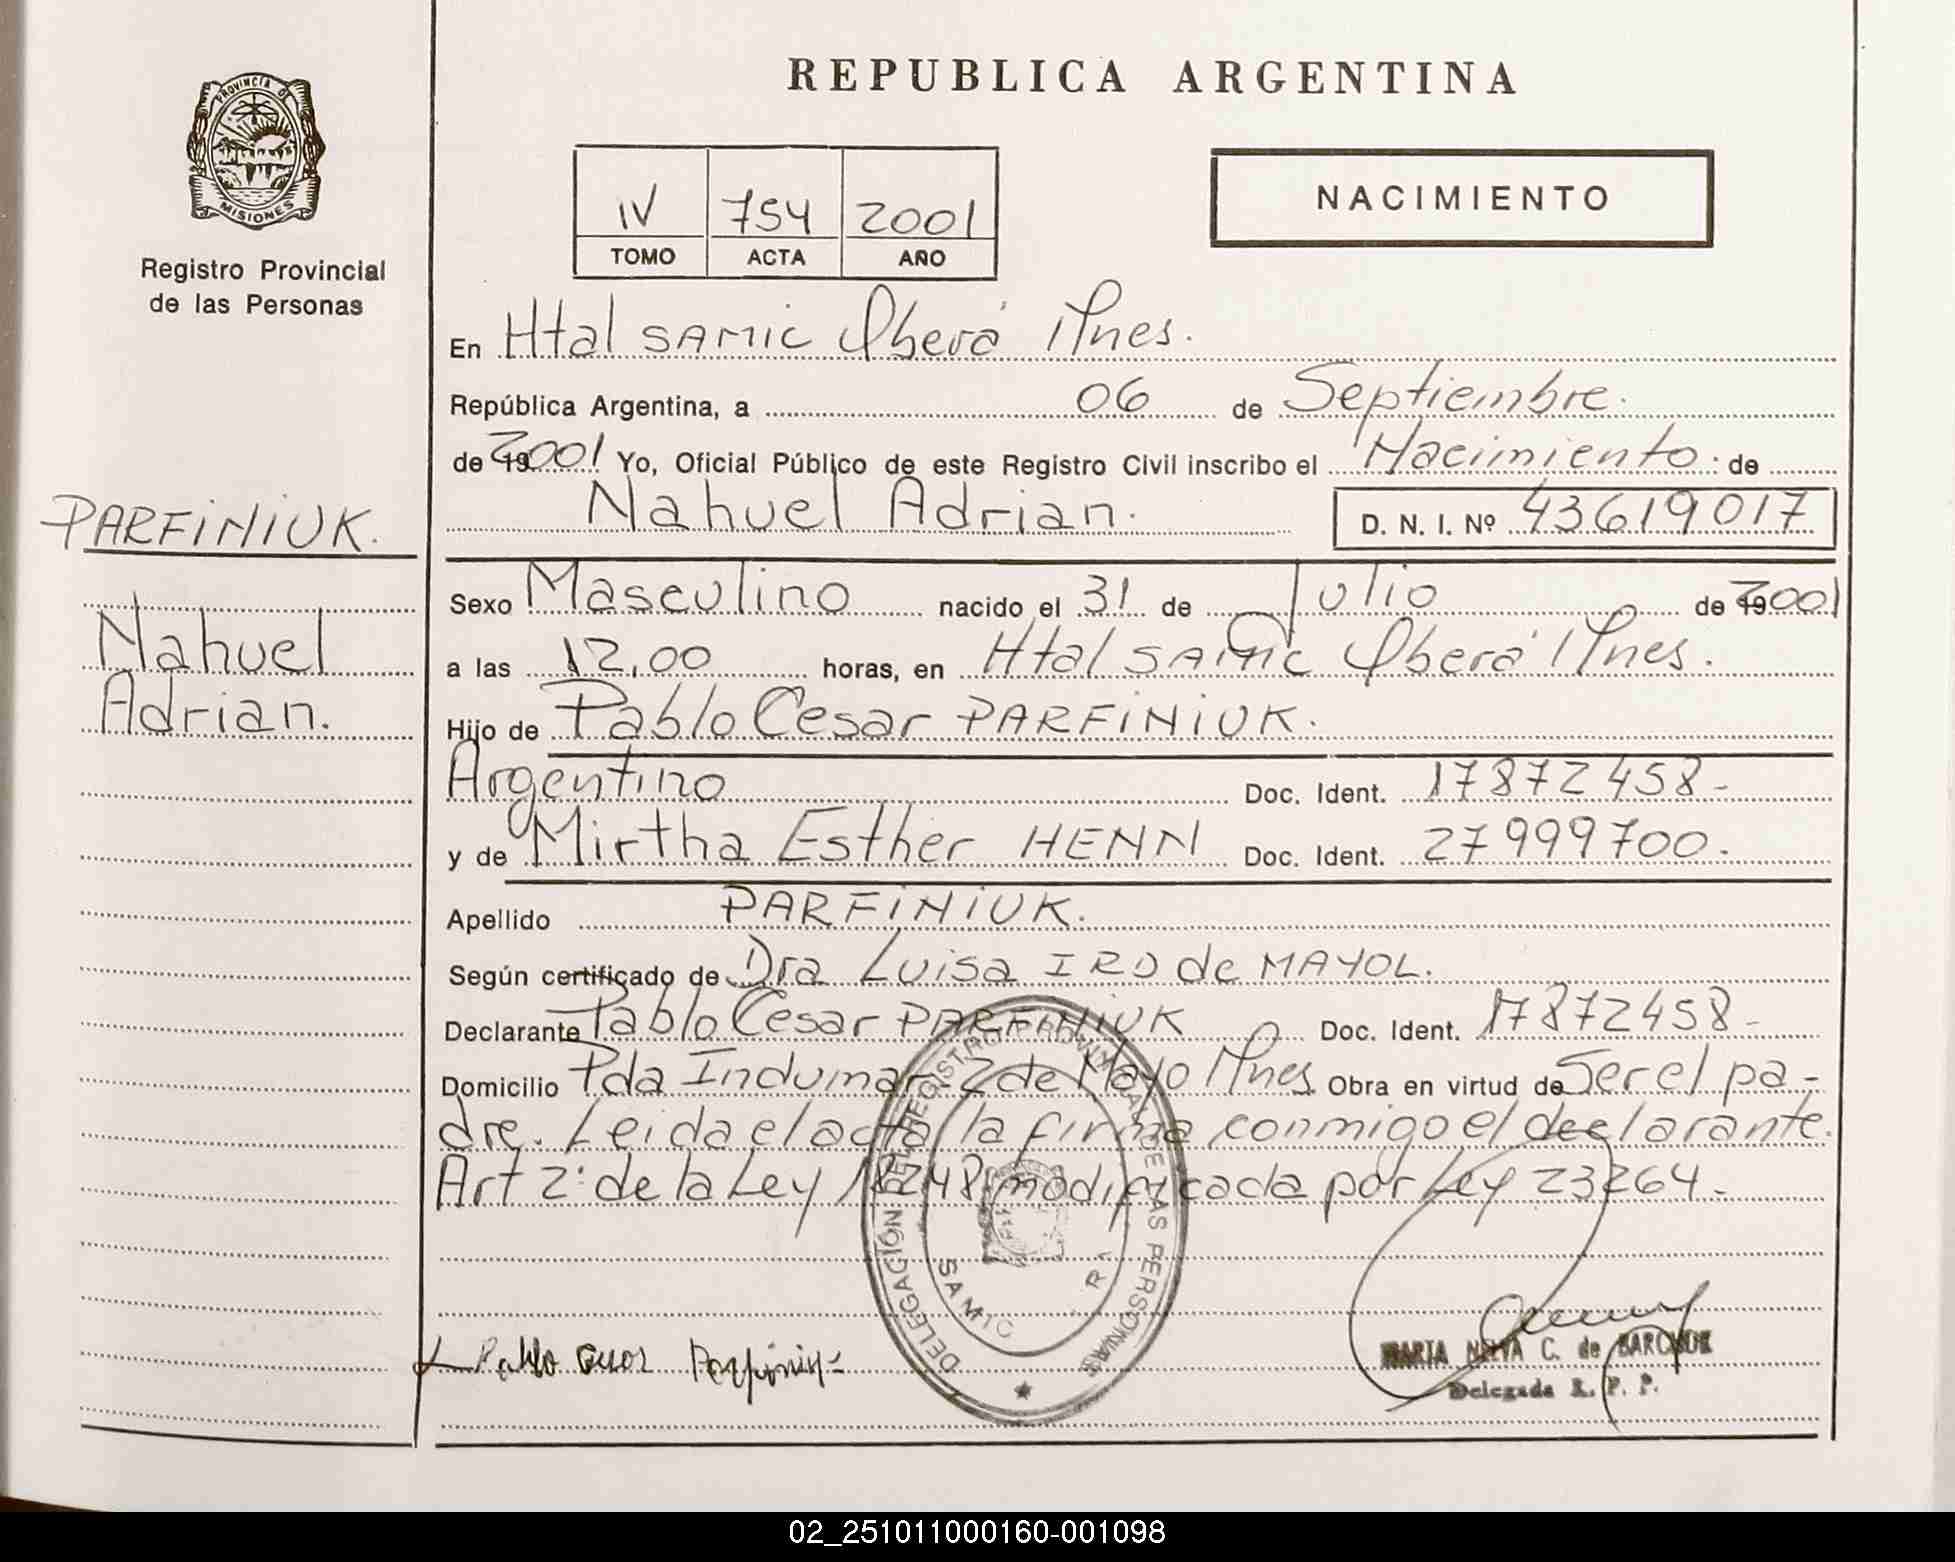 REPUBLICA ARGENTINA
PROVINCIA DE
MISIONES
Registro Provincial
de las Personas
IV 754 2001
TOMO ACTA AÑO
NACIMIENTO
En Htal SAMIC Oberá Mnes.
República Argentina, a 06 de Septiembre.
de 2001 Yo, Oficial Público de este Registro Civil inscribo el Nacimiento. de
Nahuel Adrian. D. N. I. Nº 43619017
PARFINIUK.
Nahuel
Adrian.
Sexo Masculino nacido el 31 de Julio de 2001
a las 12,00 horas, en Htal SAMIC Oberá Mnes.
Hijo de Pablo Cesar PARFINIUK.
Argentino Doc. Ident. 17872458-
y de Mirtha Esther HENN Doc. Ident. 27999700.
Apellido PARFINIUK.
Según certificado de Dra Luisa IRO de MAYOL.
Declarante Pablo Cesar PARFINIUK Doc. Ident. 17872458-
Domicilio Pda Indumar-2 de Mayo Mnes Obra en virtud de Ser el pa-
dre. Leida el acta la firma conmigo el declarante.
Art 2: de la Ley 18248 modificada por Ley 23264-
DELEGACIÓN DEL REGISTRO PROVINCIAL DE LAS PERSONAS
SAMIC
Pablo Cesar Parfiniuk
MARTA C. de
Delegada R. P. P.
02_251011000160-001098